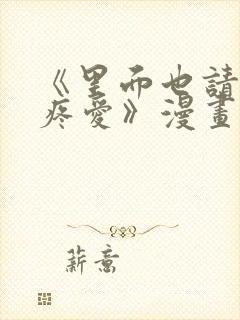 《里而也請
疼愛》漫畫
薪意